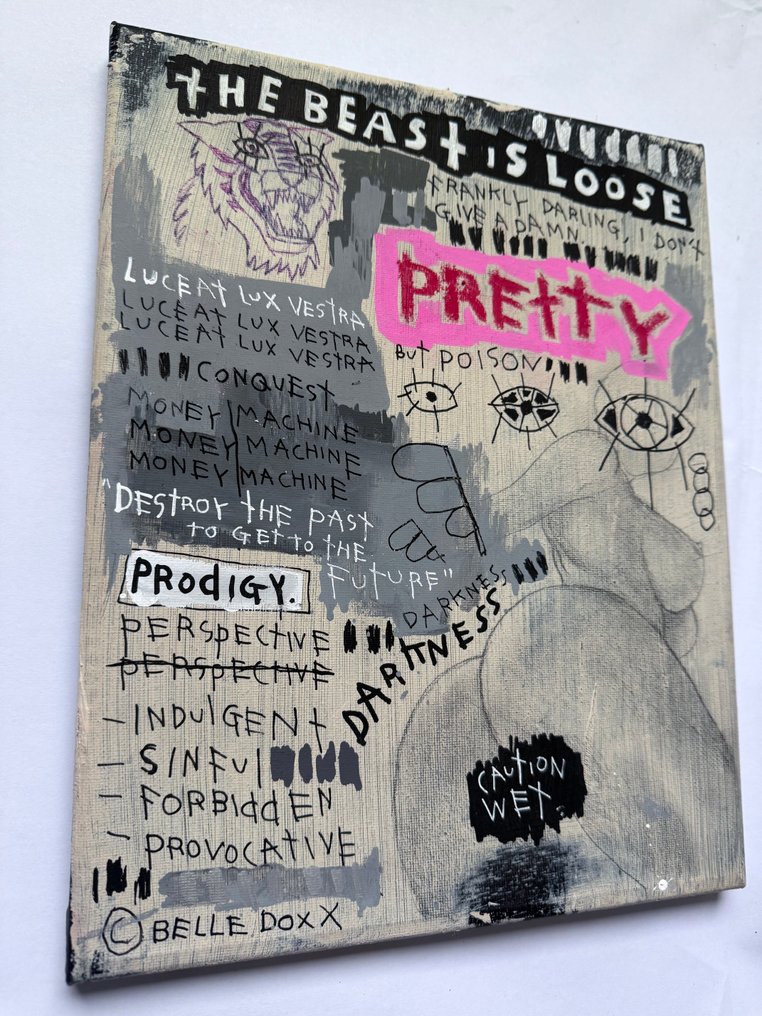 THE BEAST IS LOOSE
FRANKLY DARLING, I DON'T
GIVE A DAMN
PRETTY
BUT POISON
LUCEAT LUX VESTRA
LUCEAT LUX VESTRA
LUCEAT LUX VESTRA
CONQUEST
MONEY MACHINE
MONEY MACHINE
MONEY MACHINE
"DESTROY THE PAST
TO GET TO THE
FUTURE"
PRODIGY.
DARKNESS
DARKNESS
PERSPECTIVE
PERSPECTIVE
- INDULGENT
- SINFUL
- FORBIDDEN
- PROVOCATIVE
CAUTION
WET.
© BELLE DOXX